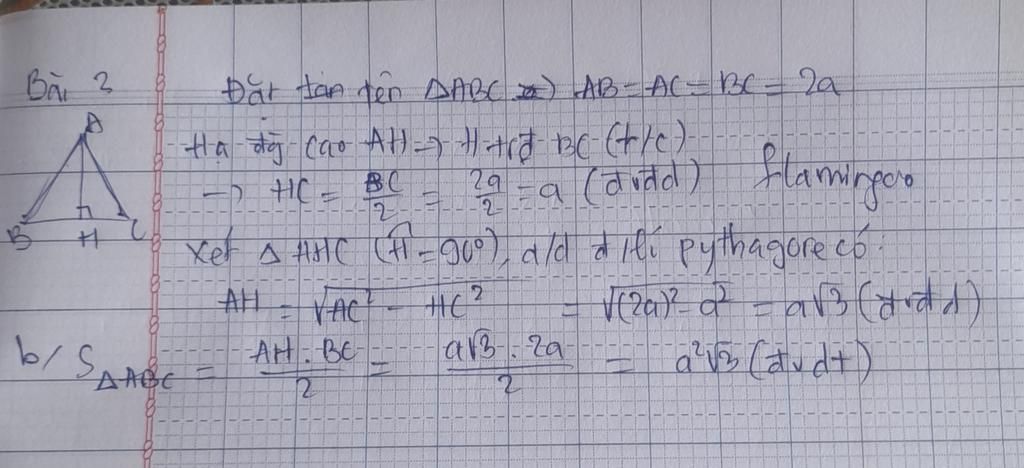 Bài 2
Đặt tên ΔABC => AB = AC = BC = 2a
A
Hạ đg cao AH → H tđ BC (t/c)
→ HC = BC/2 = 2a/2 = a (đvđd) flamingoo
B H C
Xét Δ AHC (Ĥ = 90°), a/d đ lí pythagore có:
AH = √(AC² - HC²) = √((2a)² - a²) = a√3 (đvđd)
b/ S ΔABC = AH . BC/2 = a√3 . 2a/2 = a²√3 (đvdt)